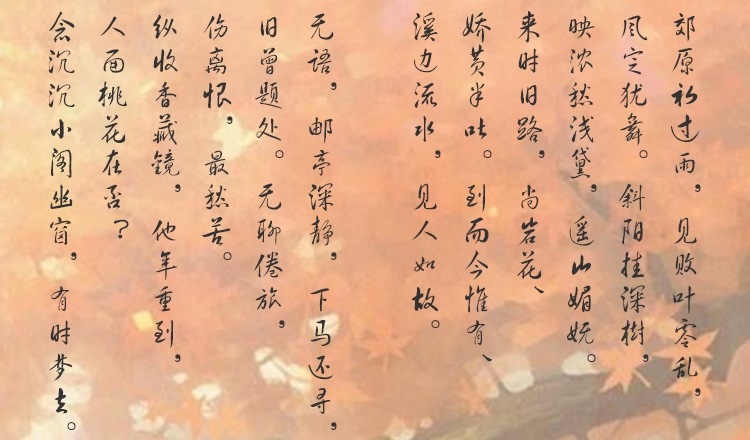 郊原初过雨，见败叶零乱，
风定犹舞。斜阳挂深树，
映浓愁浅黛，遥山媚妩。
来时旧路，尚岩花、
娇黄半吐。到而今惟有、
溪边流水，见人如故。
无语，邮亭深静，下马还寻，
旧曾题处。无聊倦旅，
伤离恨，最愁苦。
纵收香藏镜，他年重到，
人面桃花在否？
念沉沉小阁幽窗，有时梦去。